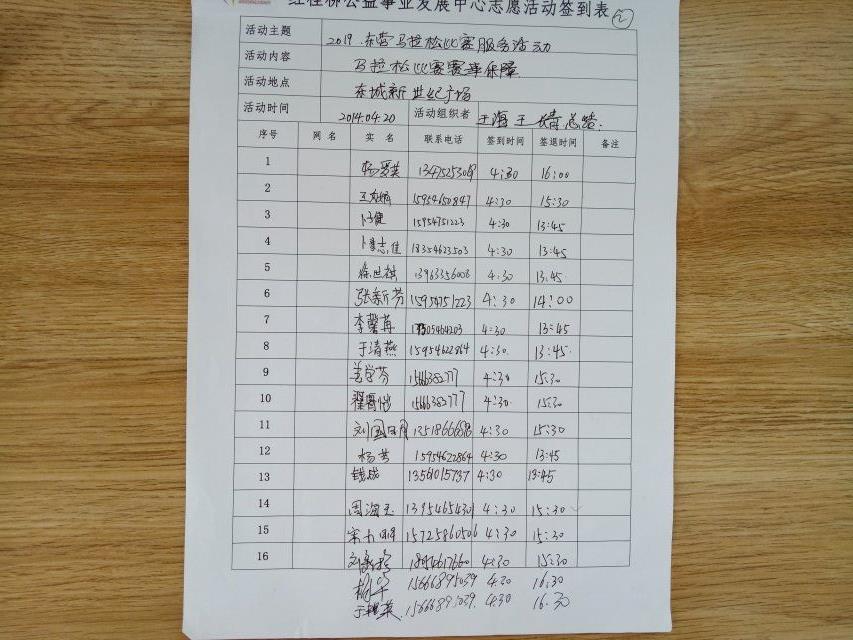 红柱柳公益事业发展中心志愿活动签到表 ②
活动主题 2019.东营马拉松比赛服务活动
活动内容 马拉松比赛赛事保障
活动地点 东城新世纪广场
活动时间 2014.04.20 活动组织者 于海 王
序号 网名 实名 联系电话 签到时间 签退时间 备注
1 杨爱英 4:30 16:00
2 15954650847 4:30 15:30
3 15954751223 4:30 13:45
4 18354623503 4:30 13:45
5 13963356008 4:30 13:45
6 张新芳 15954751223 4:30 14:00
7 李馨苒 4:30 13:45
8 于清燕 15954622864 4:30 13:45
9 姜学芬 1566382777 4:30 15:30
10 1566382777 4:30 15:30
11 4:30 15:30
12 杨芳 15954622864 4:30 13:45
13 13561015737 4:30 13:45
14 周海玉 1395465430 4:30 15:30
15 15725860506 4:30 15:30
16 4:30 15:30
15666895039 4:30 16:30
15666895039 4:30 16:30